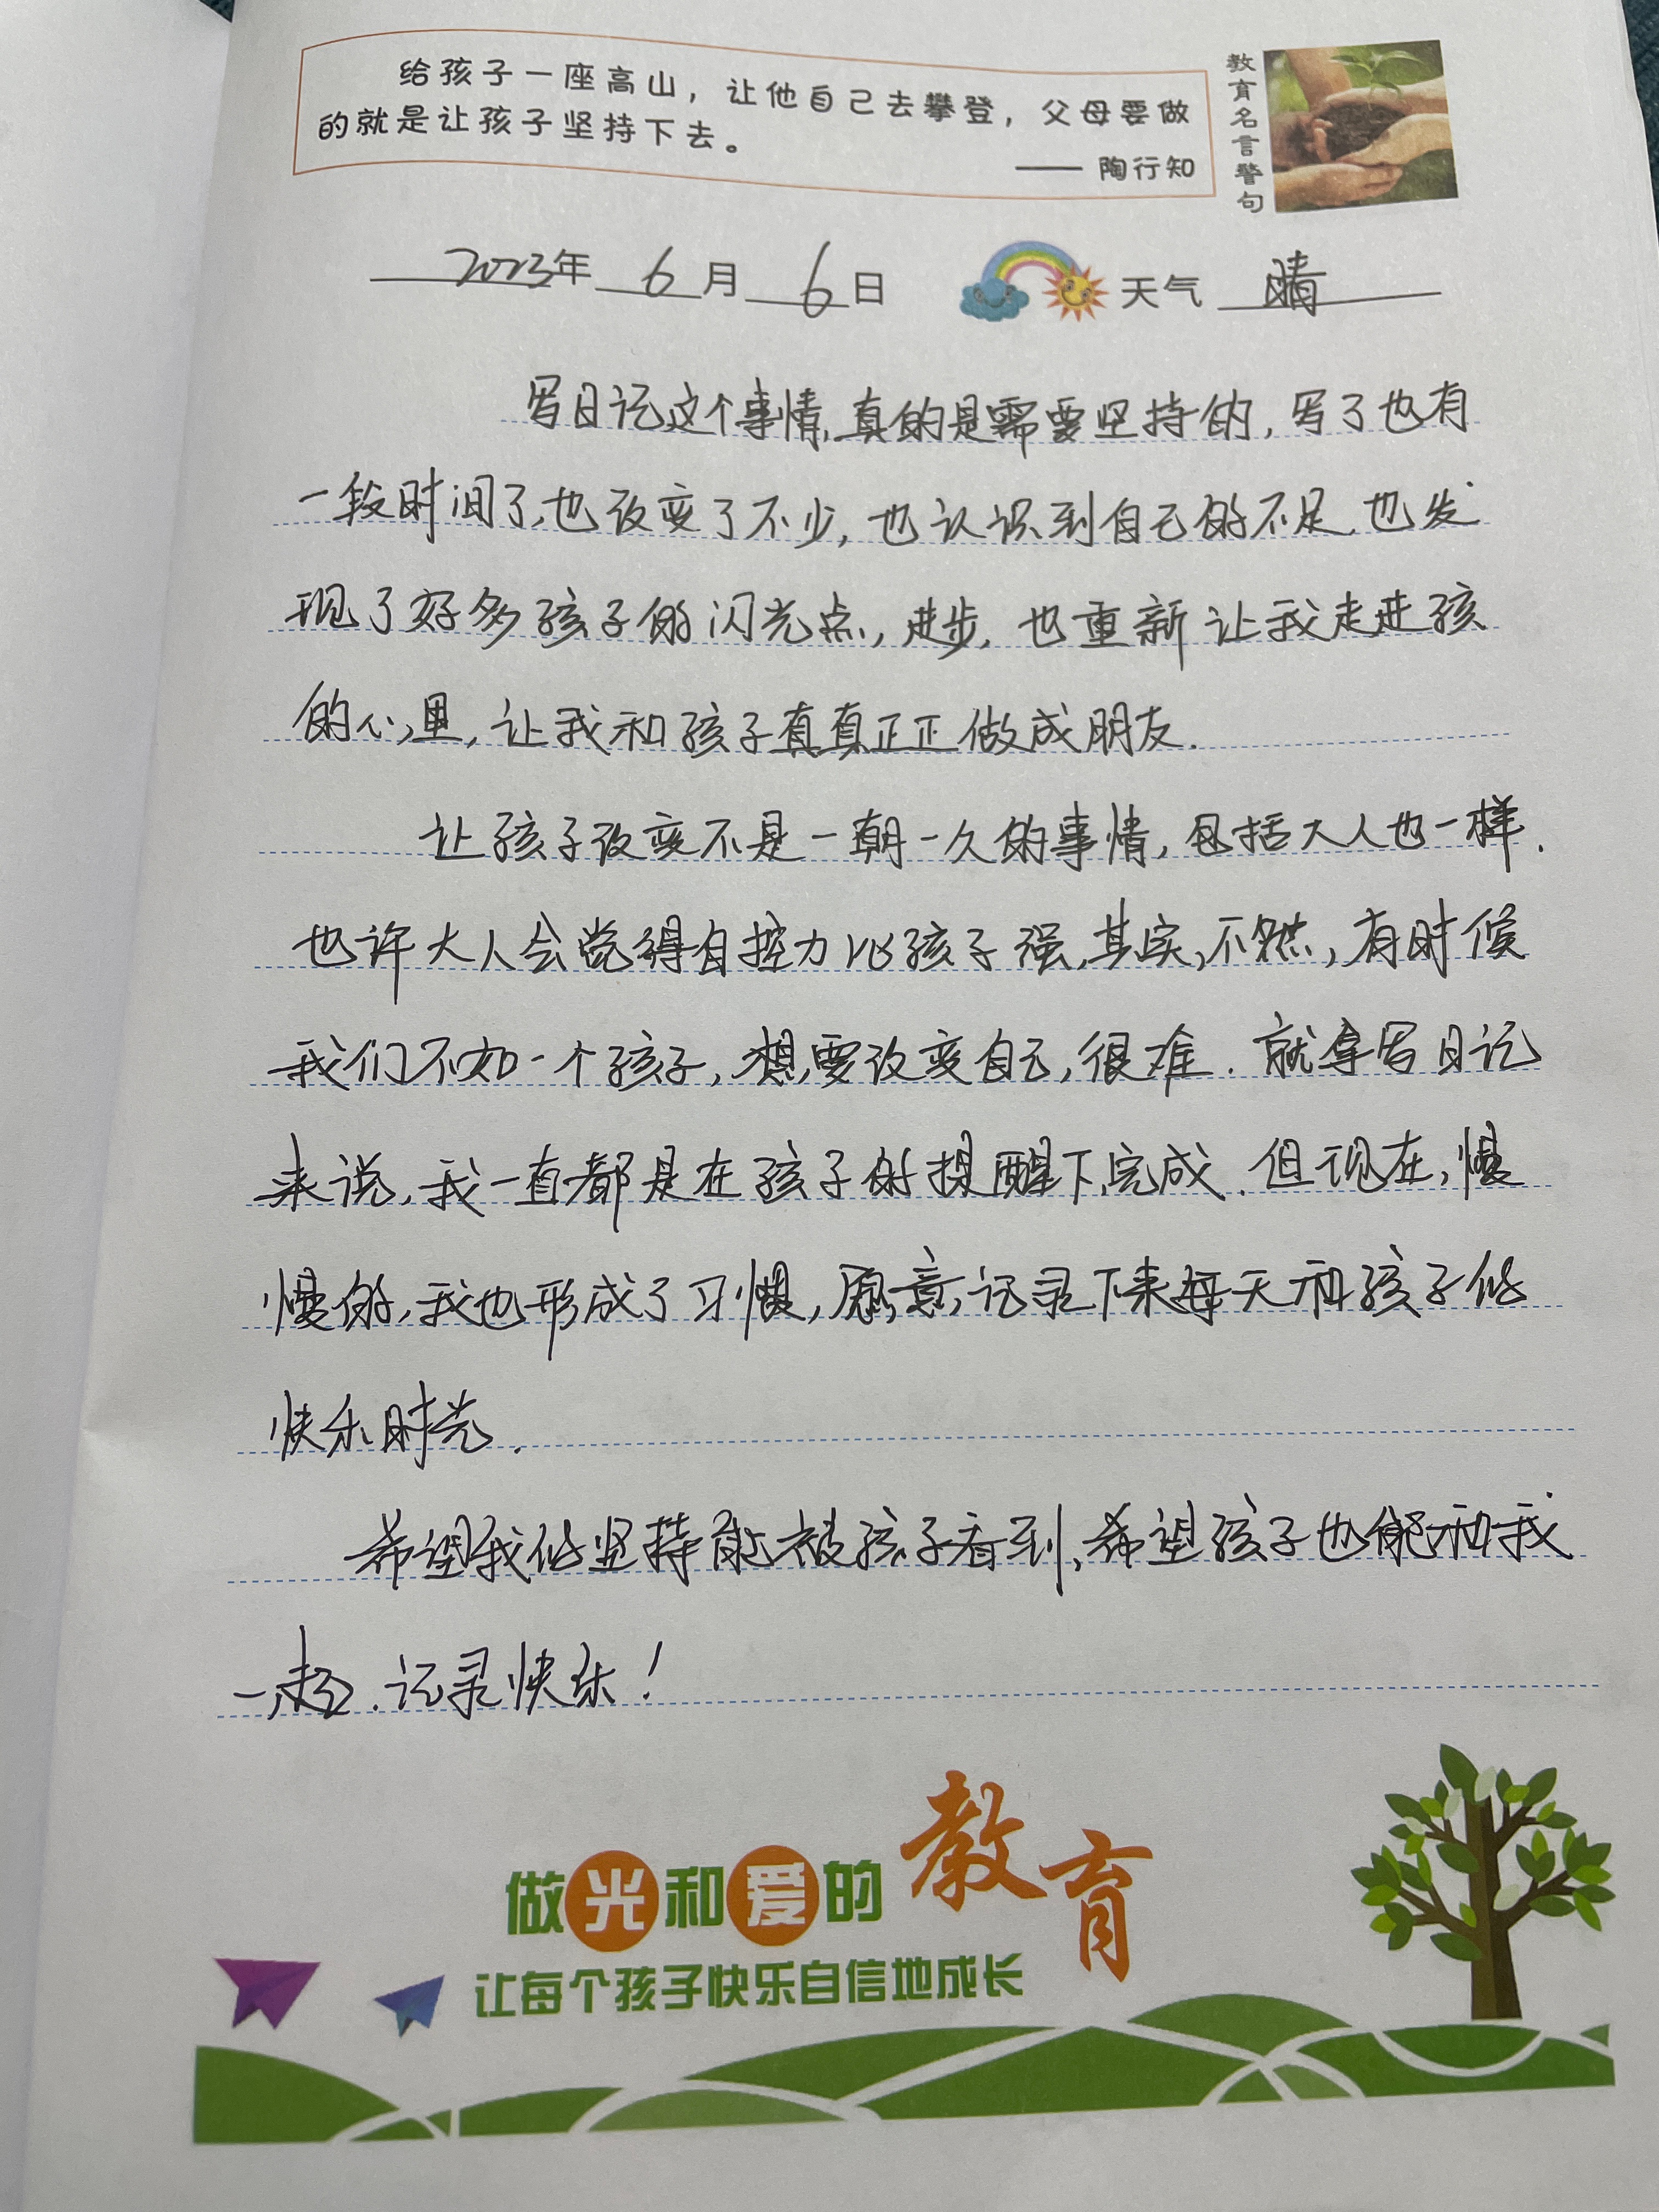 给孩子一座高山，让他自己去攀登，父母要做
的就是让孩子坚持下去。
—— 陶行知
教育名言警句
2023年 6 月 6 日 天气 晴
写日记这个事情,真的是需要坚持的,写了也有
一段时间了,也改变了不少,也认识到自己的不足.也发
现了好多孩子的闪光点,进步,也重新让我走进孩
的心里,让我和孩子真真正正做成朋友.
让孩子改变不是一朝一久的事情,包括大人也一样.
也许大人会觉得自控力比孩子强,其实,不然,有时候
我们不如一个孩子,想要改变自己,很难.就拿写日记
来说,我一直都是在孩子的提醒下,完成.但现在,慢
慢的,我也形成了习惯,愿意,记录下来每天和孩子的
快乐时光.
希望我的坚持能被孩子看到,希望孩子也能和我
一起.记录快乐!
做光和爱的教育
让每个孩子快乐自信地成长